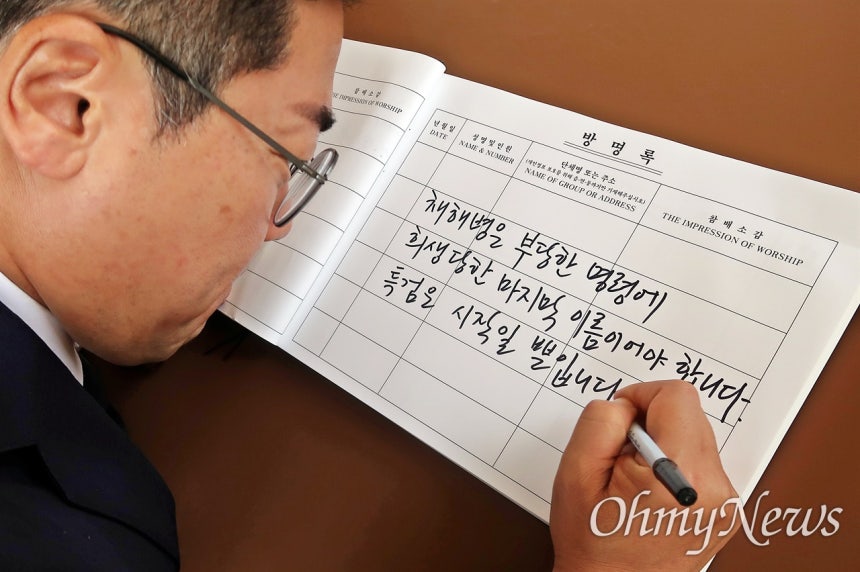 참 배 소 감
THE IMPRESSION OF WORSHIP
방 명 록
년 월 일
DATE
성 명 및 인 원
NAME & NUMBER
단체명 또는 주소
(개인정보 보호를 위해 읍·면·동까지만 기재해주십시오)
NAME OF GROUP OR ADDRESS
참 배 소 감
THE IMPRESSION OF WORSHIP
채해병은 부당한 명령에
희생당한 마지막 이름이어야 합니다.
특검은 시작일 뿐입니다
OhmyNews